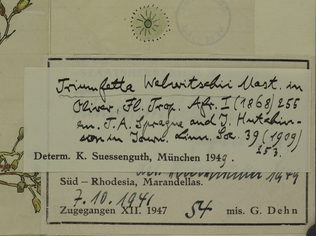 Triumfetta Welwitschii Mast. in
Oliver, Fl. Trop. Afr. I (1868) 255
em. T. A. Sprague and J. Hutchin-
son in Journ. Linn. Soc. 39 (1909)
253.
Determ. K. Suessenguth, München 1949.
1949
Süd – Rhodesia, Marandellas.
7. 10. 1941
Zugegangen XII. 1947 54 mis. G. Dehn